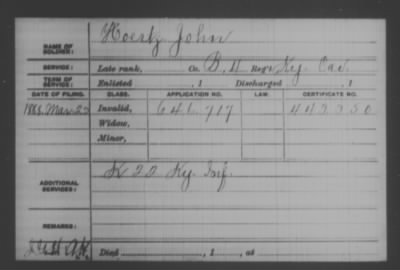 NAME OF SOLDIER: Hoertz John
SERVICE: Late rank, Co. B, 4 Reg't Ky. Cav.
TERM OF SERVICE: Enlisted , 1 Discharged , 1
DATE OF FILING. CLASS. APPLICATION NO. LAW. CERTIFICATE NO.
1888 Mar 2 Invalid, 641,717 443330
Widow,
Minor,
ADDITIONAL SERVICES: K 22 Ky. Inf.
REMARKS:
Died , 1 , at